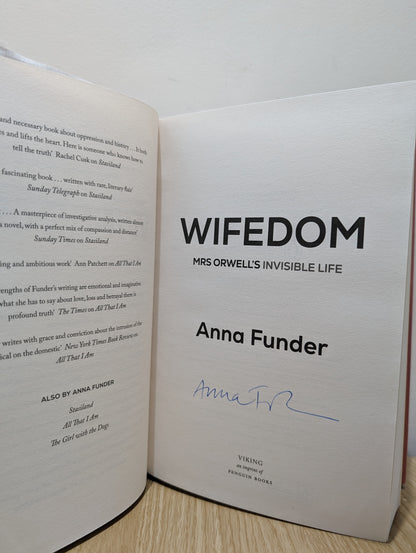 and necessary book about oppression and history . . . It both
es and lifts the heart. Here is someone who knows how to
tell the truth' Rachel Cusk on Stasiland
fascinating book . . . written with rare, literary flair'
Sunday Telegraph on Stasiland
. . . A masterpiece of investigative analysis, written almost
a novel, with a perfect mix of compassion and distance'
Sunday Times on Stasiland
ing and ambitious work' Ann Patchett on All That I Am
rengths of Funder's writing are emotional and imaginative
what she has to say about love, loss and betrayal there is
profound truth' The Times on All That I Am
writes with grace and conviction about the intrusion of the
ical on the domestic' New York Times Book Review on
All That I Am
ALSO BY ANNA FUNDER
Stasiland
All That I Am
The Girl with the Dogs
WIFEDOM
MRS ORWELL'S INVISIBLE LIFE
Anna Funder
Anna F
VIKING
an imprint of
PENGUIN BOOKS